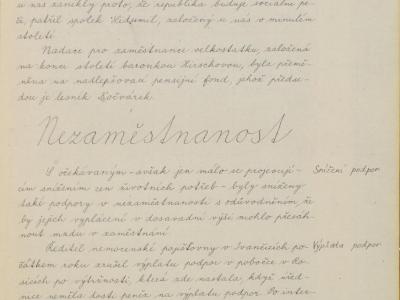 u nás zanikly proto, že republika buduje sociální pé-
če, patřil spolek Lidumil, založený u nás v minulém
století.
Nadace pro zaměstnance velkostatku, založená
na konci století baronkou Hirschovou, byla přemě-
něna na nadlepšovací pensijní fond, jehož předse-
dou je lesník Kočvárek.
Nezaměstnanost
S očekávaným – avšak jen málo se projevují-
cím snížením cen životních potřeb – byly sníženy
také podpory v nezaměstnanosti s odůvodněním, že
by jejich vyplácení v dosavadní výši mohlo přesáh-
nout mzdu v zaměstnání.
Snížení podpor
Ředitel nemocenské pojišťovny v Ivančicích po-
čátkem roku zrušil výplatu podpor v pobočce v Ro-
sicích po výtržnosti, která zde nastala, když úřed-
nice neměla dosti peněz na výplatu podpor. Po inter-
Výplata podpor